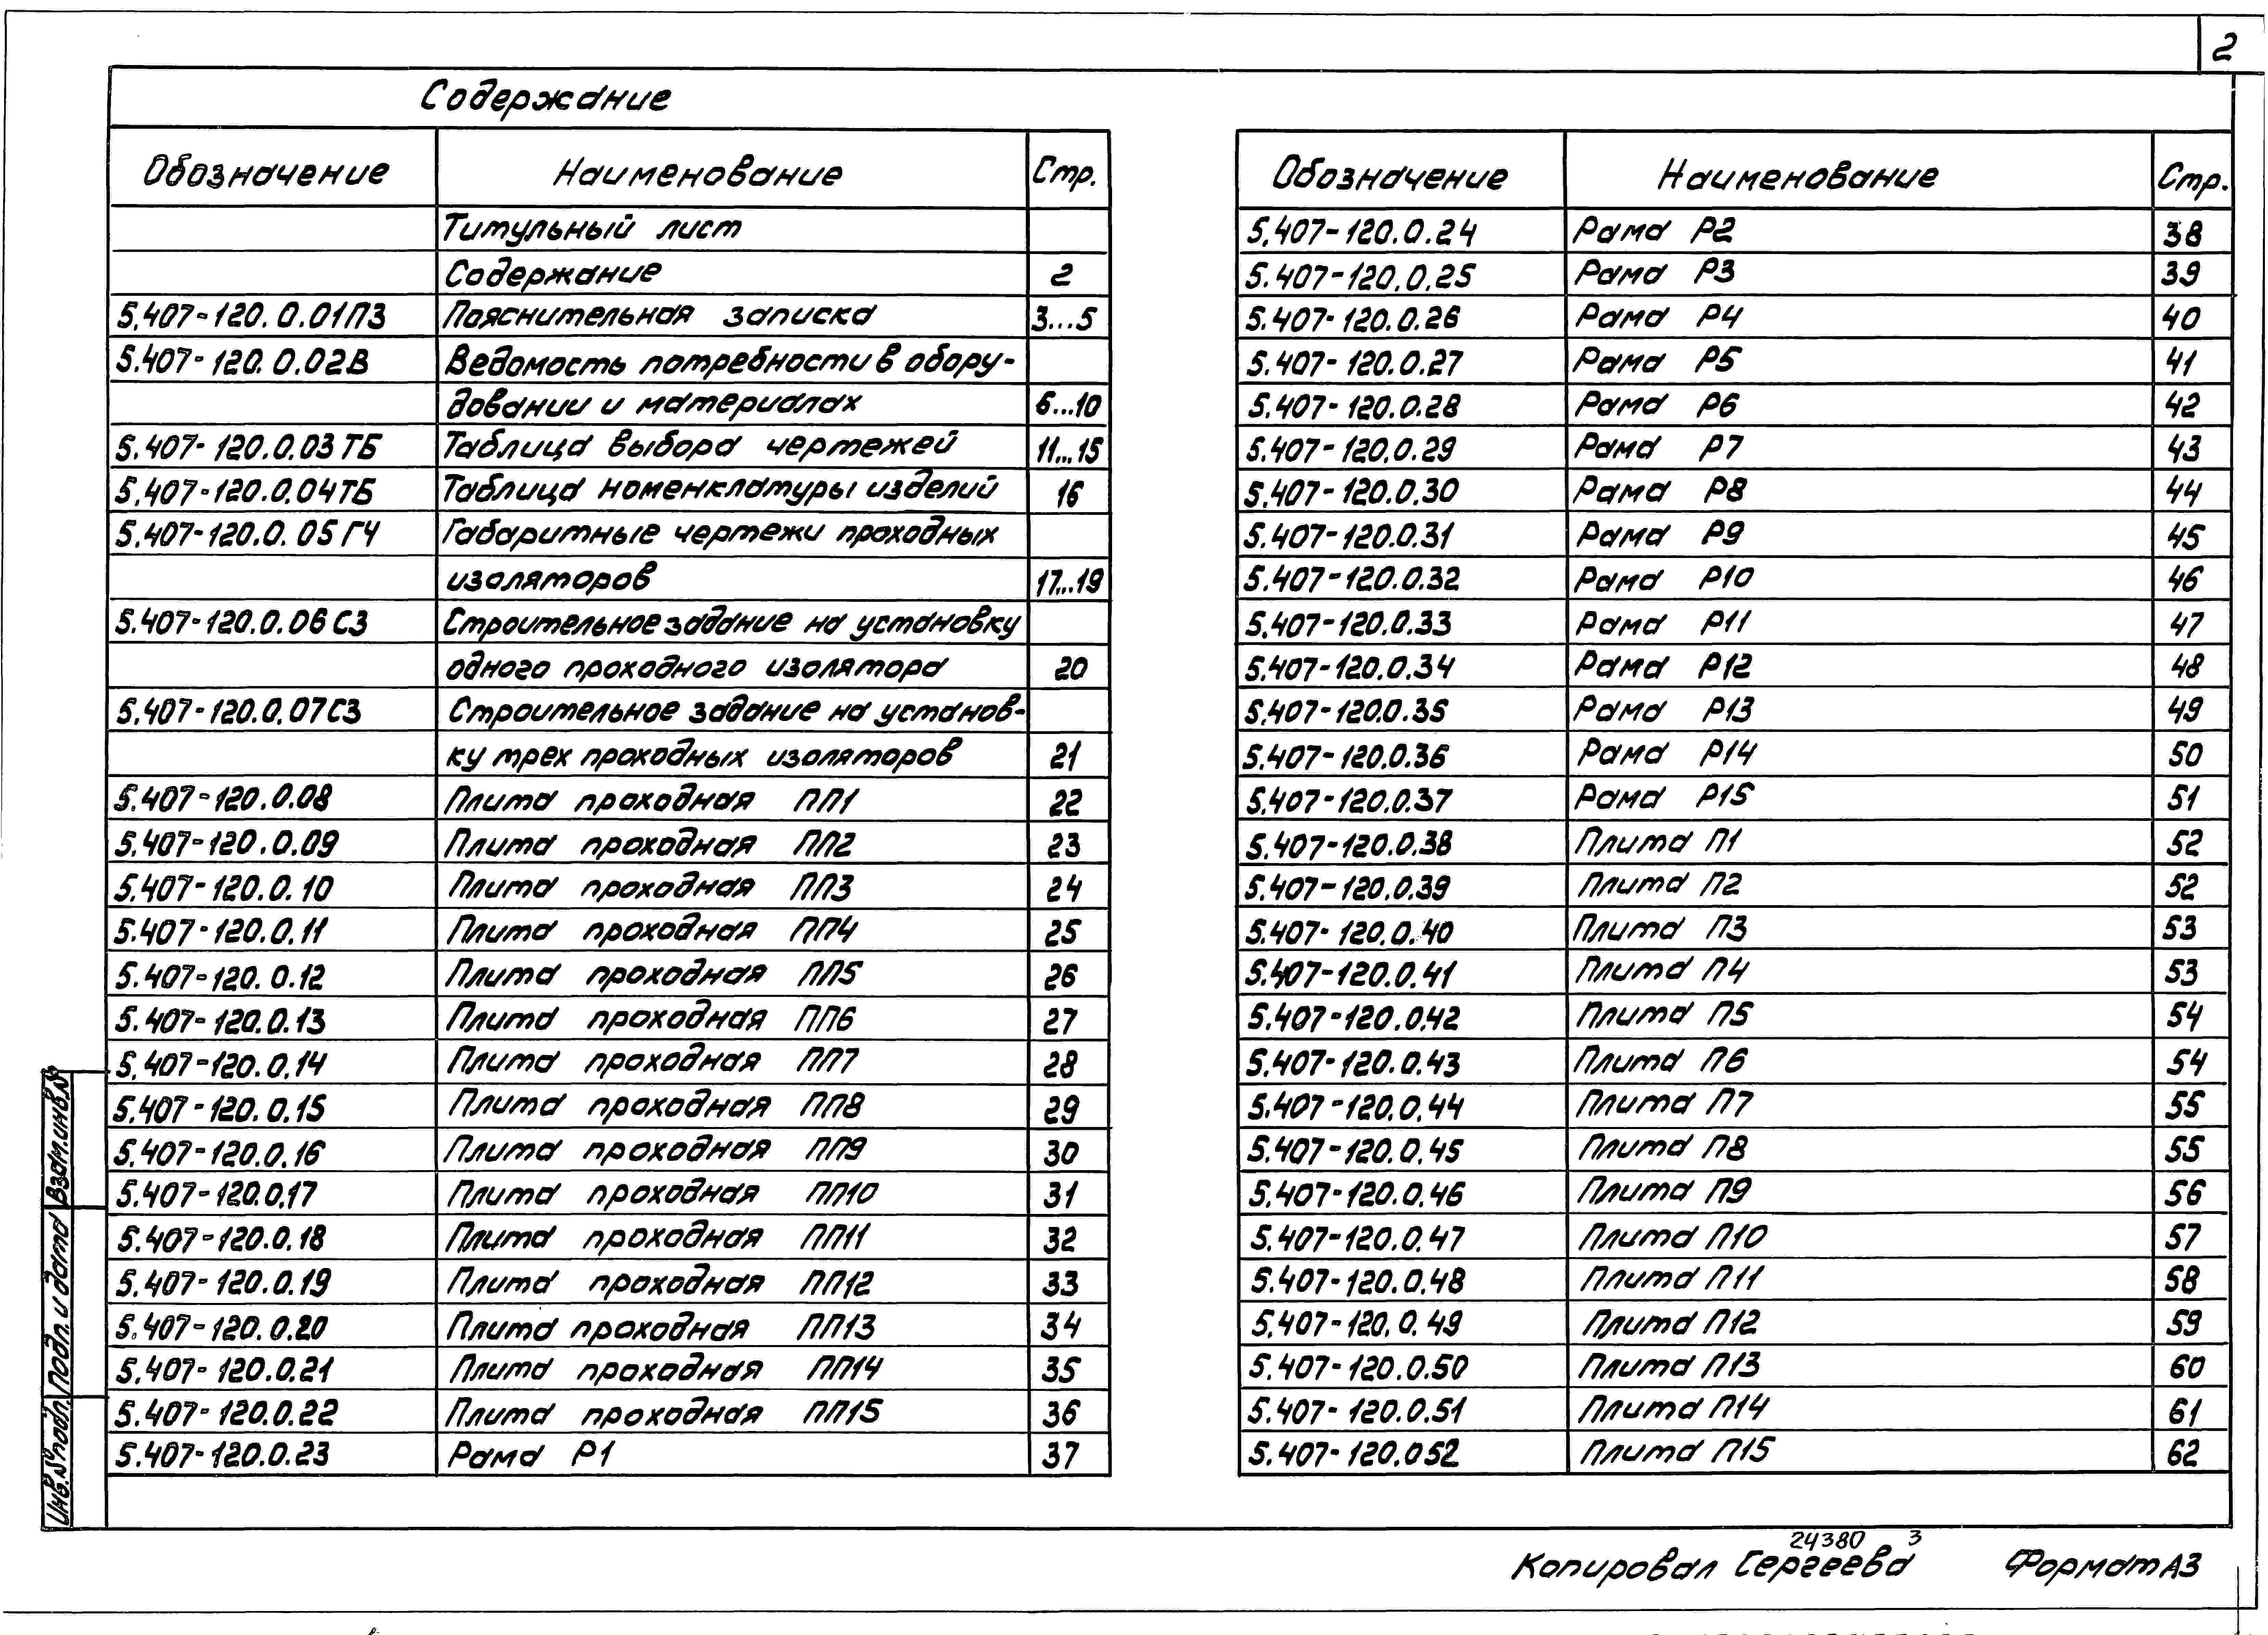 2
Содержание
Обозначение Наименование Стр.
Титульный лист
Содержание 2
5.407-120.0.01ПЗ Пояснительная записка 3...5
5.407-120.0.02В Ведомость потребности в обору-
довании и материалах 6...10
5.407-120.0.03ТБ Таблица выбора чертежей 11...15
5.407-120.0.04ТБ Таблица номенклатуры изделий 16
5.407-120.0.05ГЧ Габаритные чертежи проходных
изоляторов 17...19
5.407-120.0.06СЗ Строительное задание на установку
одного проходного изолятора 20
5.407-120.0.07СЗ Строительное задание на установ-
ку трех проходных изоляторов 21
5.407-120.0.08 Плита проходная ПП1 22
5.407-120.0.09 Плита проходная ПП2 23
5.407-120.0.10 Плита проходная ПП3 24
5.407-120.0.11 Плита проходная ПП4 25
5.407-120.0.12 Плита проходная ПП5 26
5.407-120.0.13 Плита проходная ПП6 27
5.407-120.0.14 Плита проходная ПП7 28
5.407-120.0.15 Плита проходная ПП8 29
5.407-120.0.16 Плита проходная ПП9 30
5.407-120.0.17 Плита проходная ПП10 31
5.407-120.0.18 Плита проходная ПП11 32
5.407-120.0.19 Плита проходная ПП12 33
5.407-120.0.20 Плита проходная ПП13 34
5.407-120.0.21 Плита проходная ПП14 35
5.407-120.0.22 Плита проходная ПП15 36
5.407-120.0.23 Рама Р1 37
Обозначение Наименование Стр.
5.407-120.0.24 Рама Р2 38
5.407-120.0.25 Рама Р3 39
5.407-120.0.26 Рама Р4 40
5.407-120.0.27 Рама Р5 41
5.407-120.0.28 Рама Р6 42
5.407-120.0.29 Рама Р7 43
5.407-120.0.30 Рама Р8 44
5.407-120.0.31 Рама Р9 45
5.407-120.0.32 Рама Р10 46
5.407-120.0.33 Рама Р11 47
5.407-120.0.34 Рама Р12 48
5.407-120.0.35 Рама Р13 49
5.407-120.0.36 Рама Р14 50
5.407-120.0.37 Рама Р15 51
5.407-120.0.38 Плита П1 52
5.407-120.0.39 Плита П2 52
5.407-120.0.40 Плита П3 53
5.407-120.0.41 Плита П4 53
5.407-120.0.42 Плита П5 54
5.407-120.0.43 Плита П6 54
5.407-120.0.44 Плита П7 55
5.407-120.0.45 Плита П8 55
5.407-120.0.46 Плита П9 56
5.407-120.0.47 Плита П10 57
5.407-120.0.48 Плита П11 58
5.407-120.0.49 Плита П12 59
5.407-120.0.50 Плита П13 60
5.407-120.0.51 Плита П14 61
5.407-120.052 Плита П15 62
Взам.инв.№
Подп. и дата
Инв.№подл.
24380 3
Копировал Сергеева Формат А3